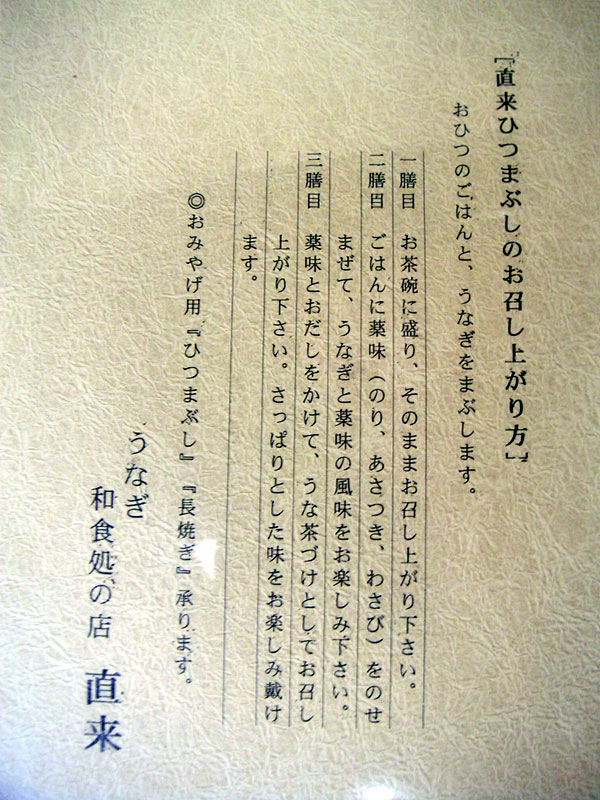 [直来ひつまぶしのお召し上がり方]
おひつのごはんと、うなぎをまぶします。
一膳目 お茶碗に盛り、そのままお召し上がり下さい。
二膳目 ごはんに薬味(のり、あさつき、わさび)をのせ
まぜて、うなぎと薬味の風味をお楽しみ下さい。
三膳目 薬味とおだしをかけて、うな茶づけとしてお召し
上がり下さい。さっぱりとした味をお楽しみ戴け
ます。
◎おみやげ用『ひつまぶし』『長焼き』承ります。
うなぎ
和食処の店 直来